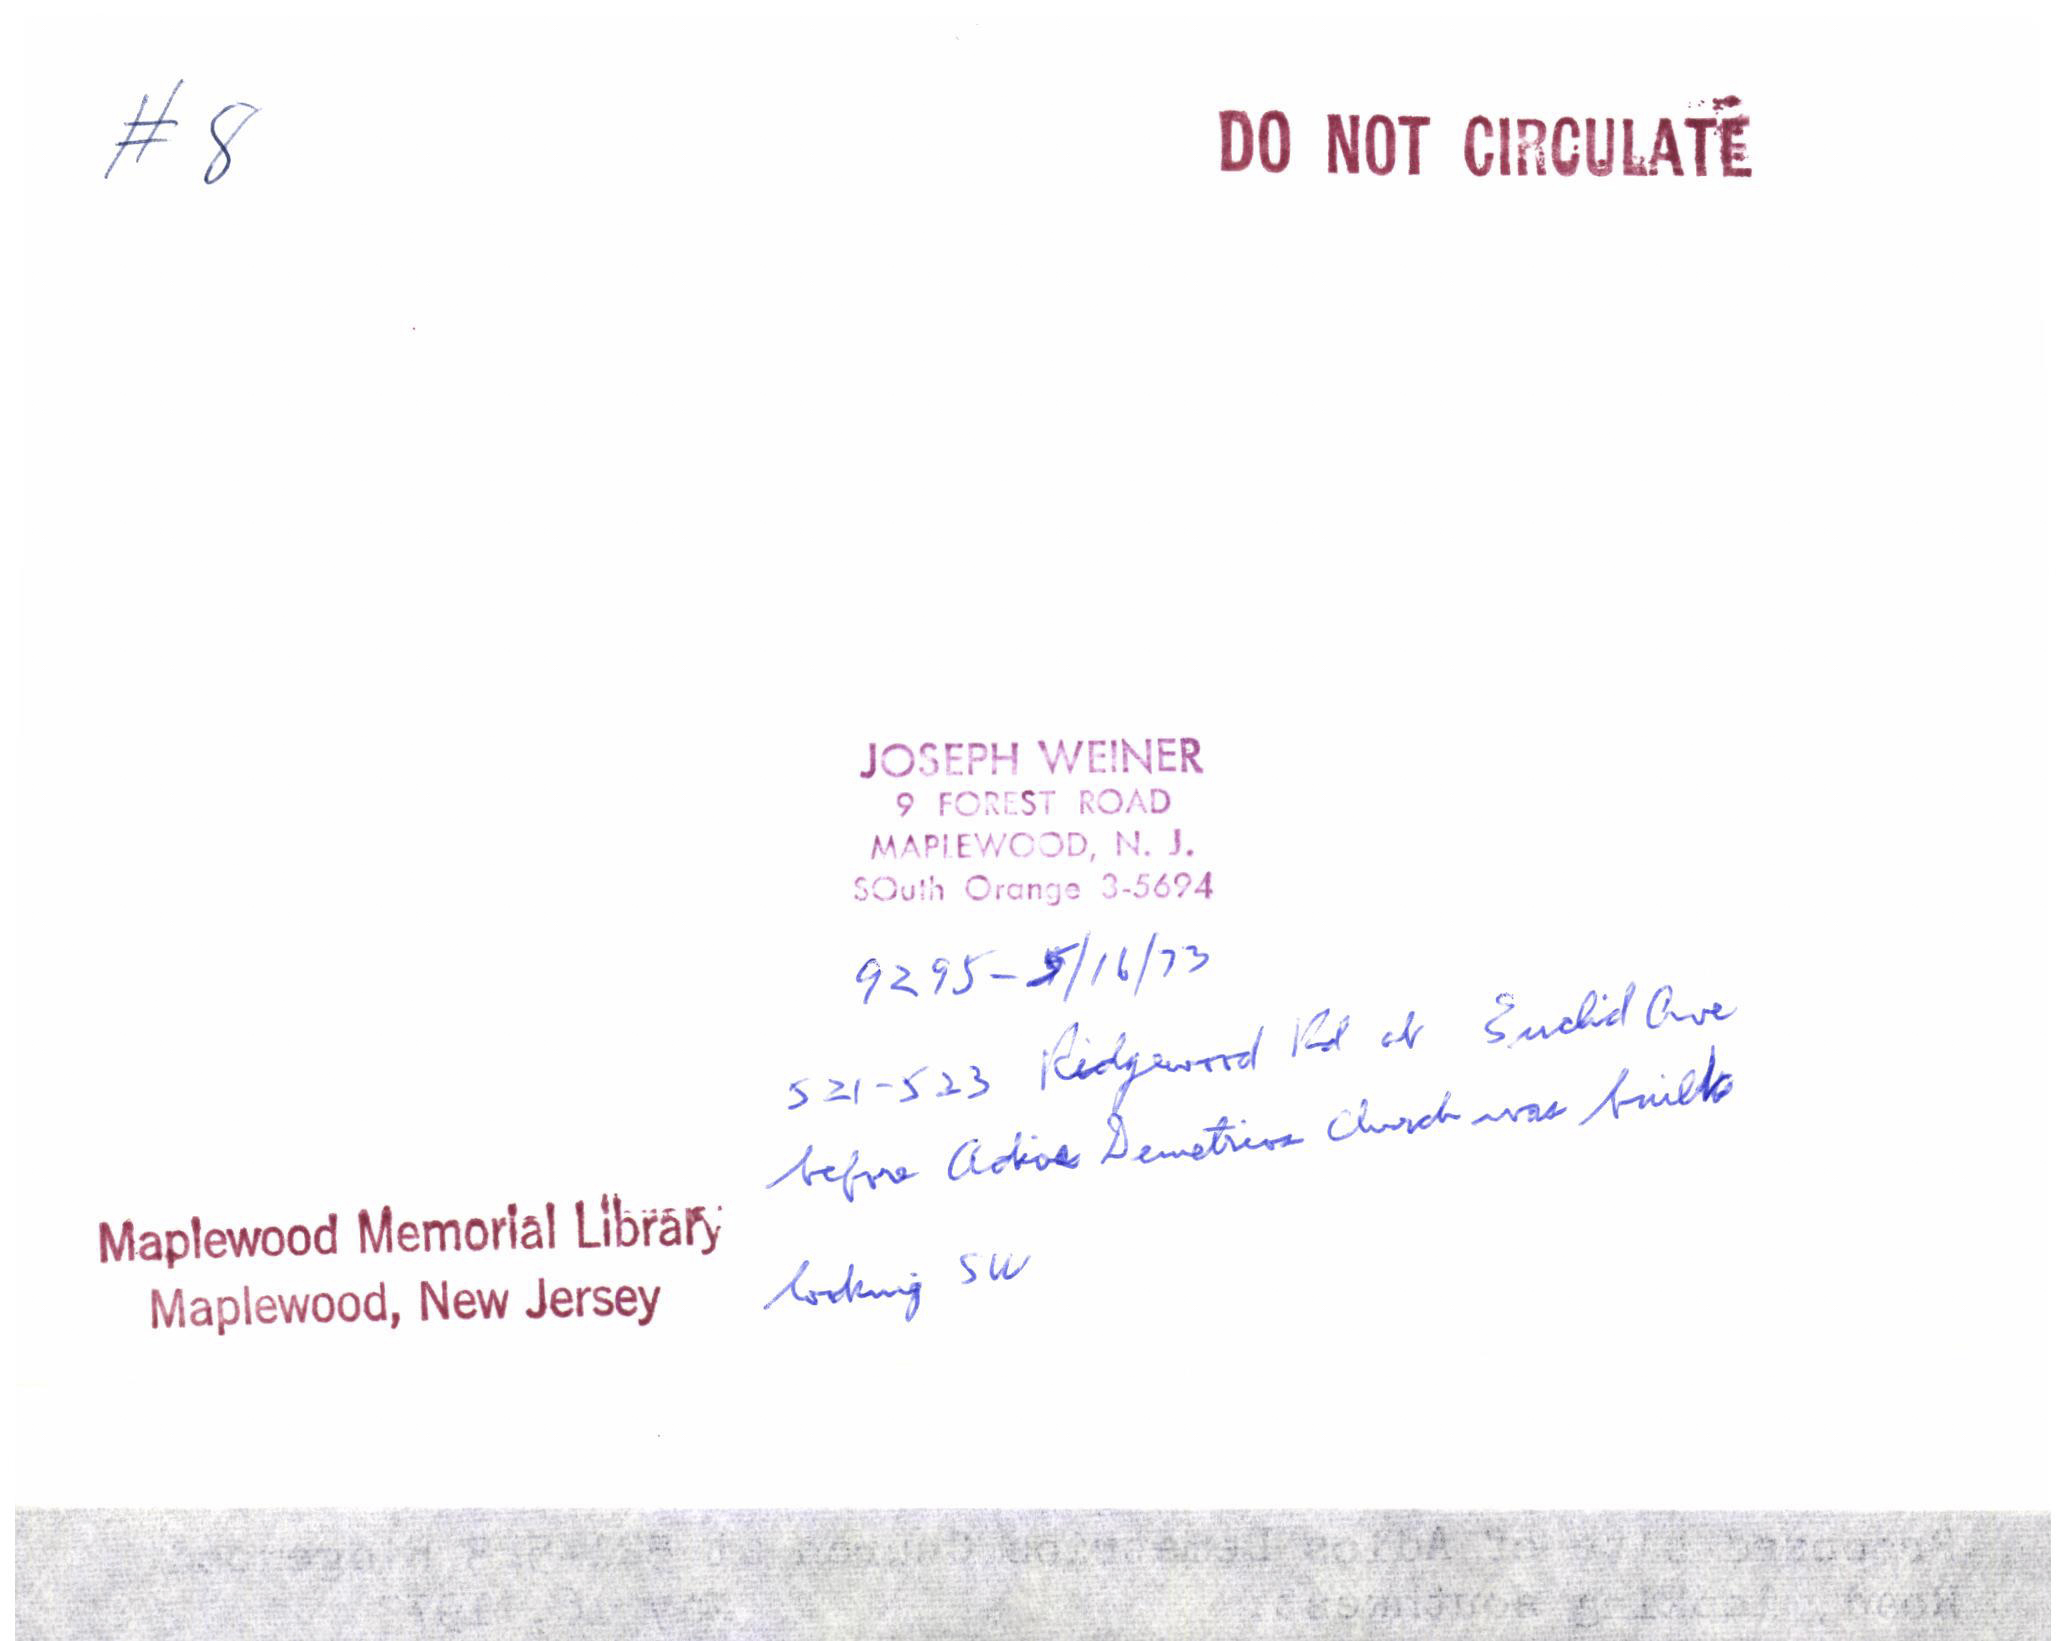 # 8
DO NOT CIRCULATE
JOSEPH WEINER
9 FOREST ROAD
MAPLEWOOD, N. J.
SOuth Orange 3-5694
9295-5/16/73
521-523 Ridgewood Rd at Euclid Ave
before Demetrios Church was built
looking SW
Maplewood Memorial Library
Maplewood, New Jersey